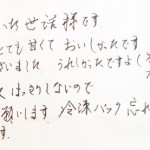 お世話様です
とても甘くて おいしかったです
ざいました うれしかったですよ
は、そりしないので
願いします 冷凍パック 忘れ
す。